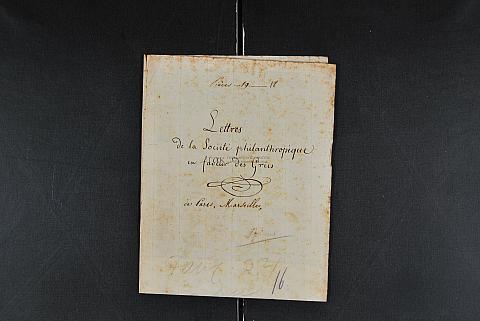 Pièces 19 — 18
Lettres
de la Société philanthropique
en faveur des Grecs
à Paris, Marseilles,
16